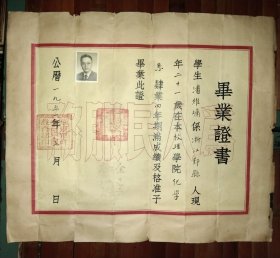 畢業證書
學生 維 係浙江 縣人現
年二十一歲在本校理學院化學
系肄業四年期滿成績及格准予
畢業此證
公曆一九五 年 月 日